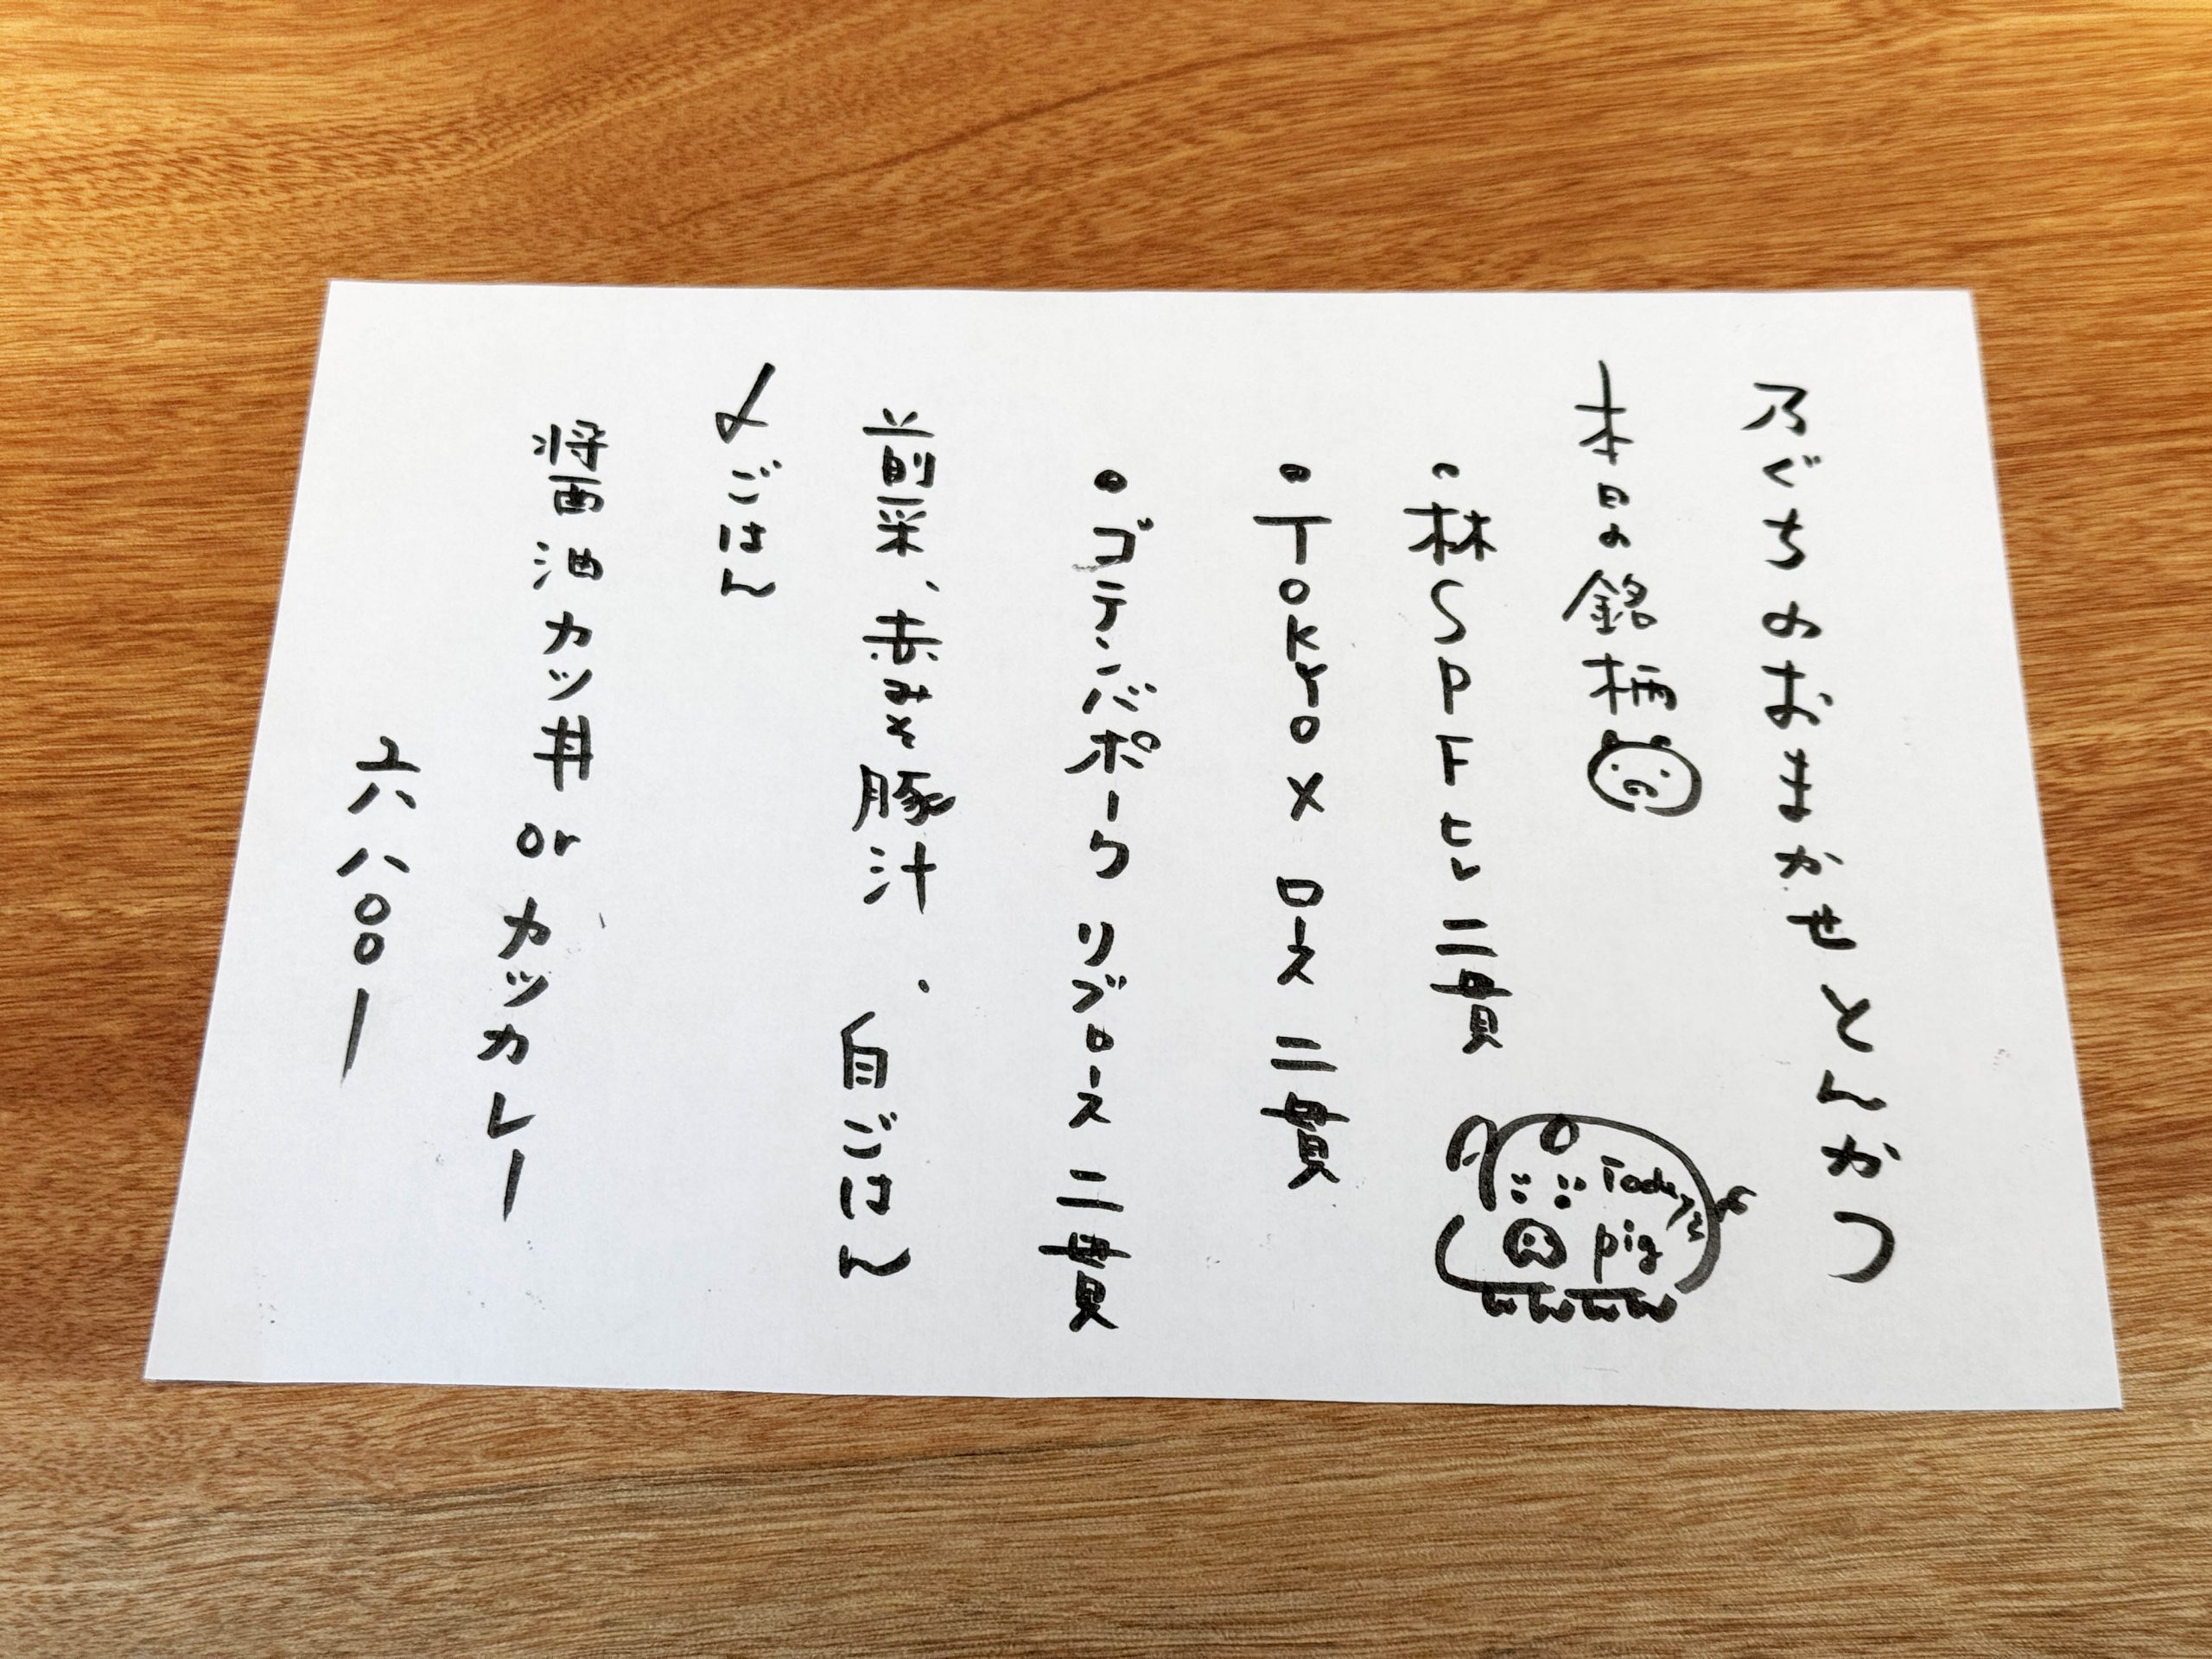 乃ぐちのおまかせとんかつ
本日の銘柄
・林SPFヒレ 二貫
・TOKYO X ロース 二貫
・ゴテンバポーク リブロース 二貫
前菜、赤みそ豚汁、白ごはん
〆ごはん
醤油カツ丼 or カツカレー
六八〇〇ー
Today's
pig